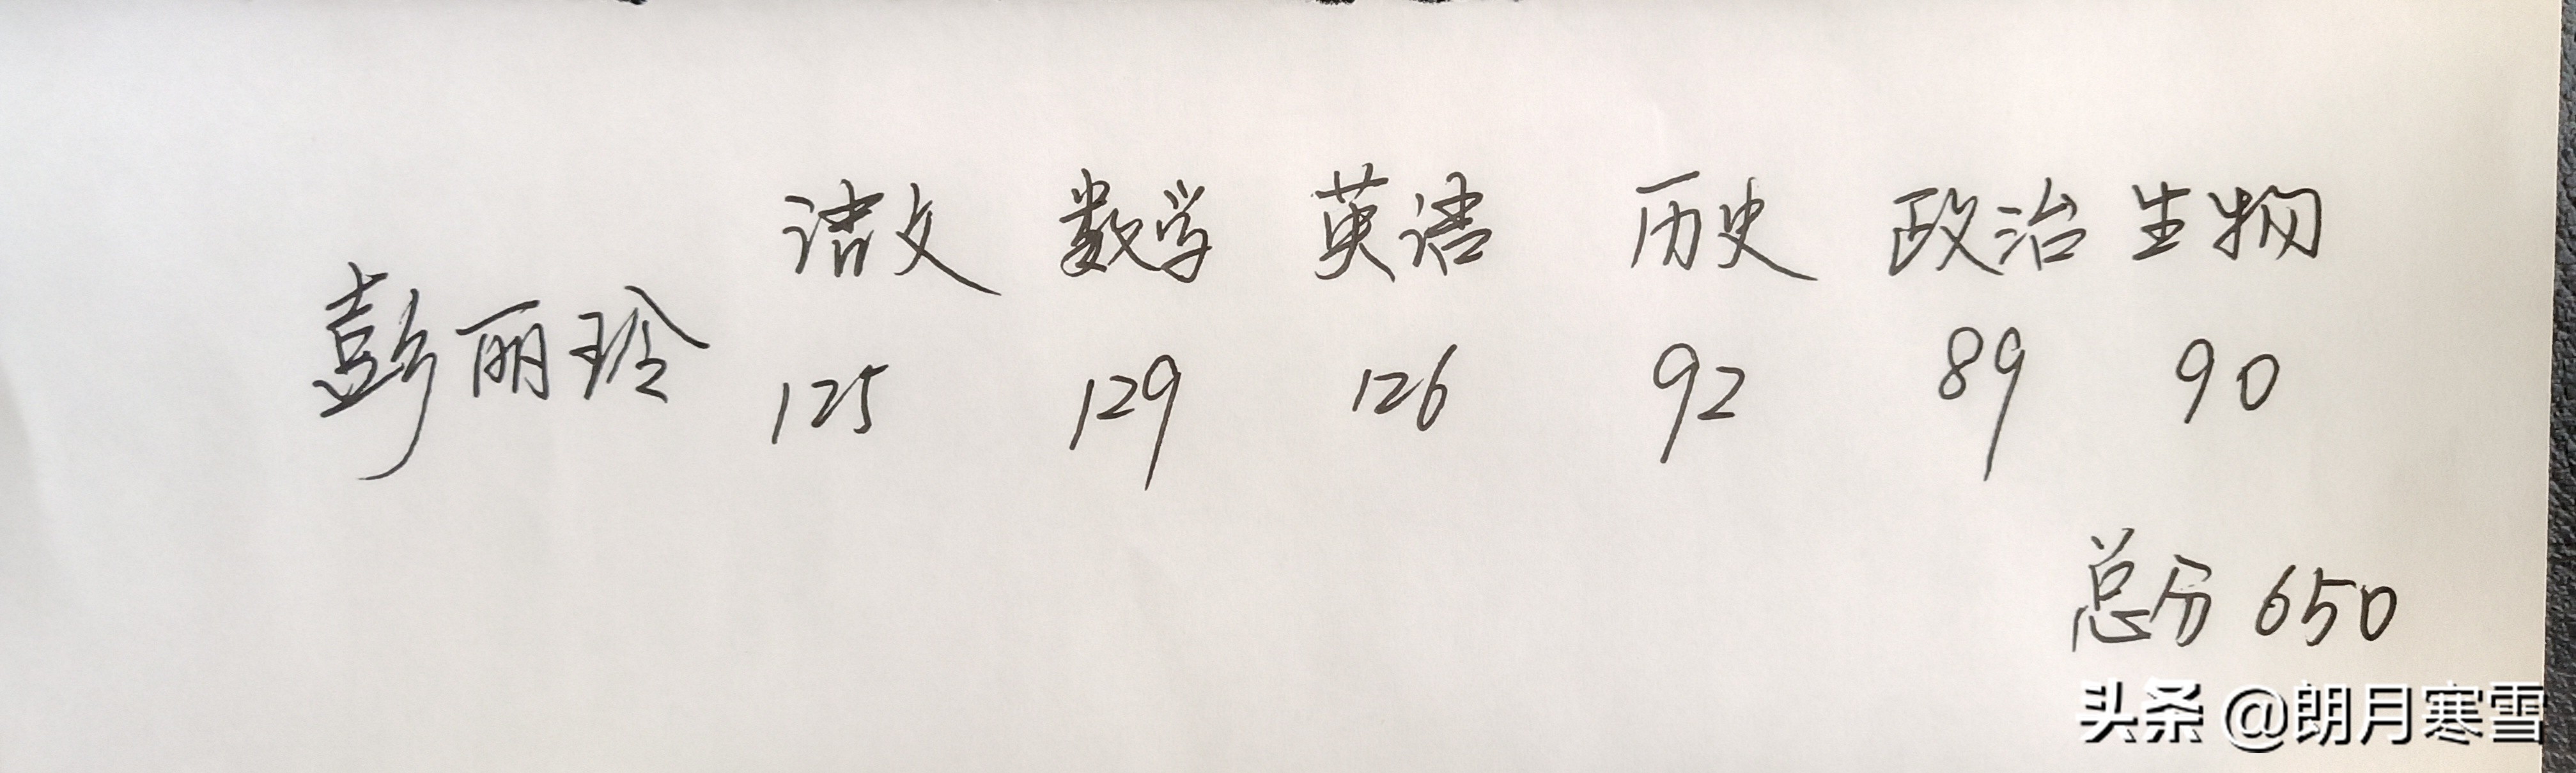 语文 数学 英语 历史 政治 生物
彭丽玲 125 129 126 92 89 90
总分 650
头条 @朗月寒雪